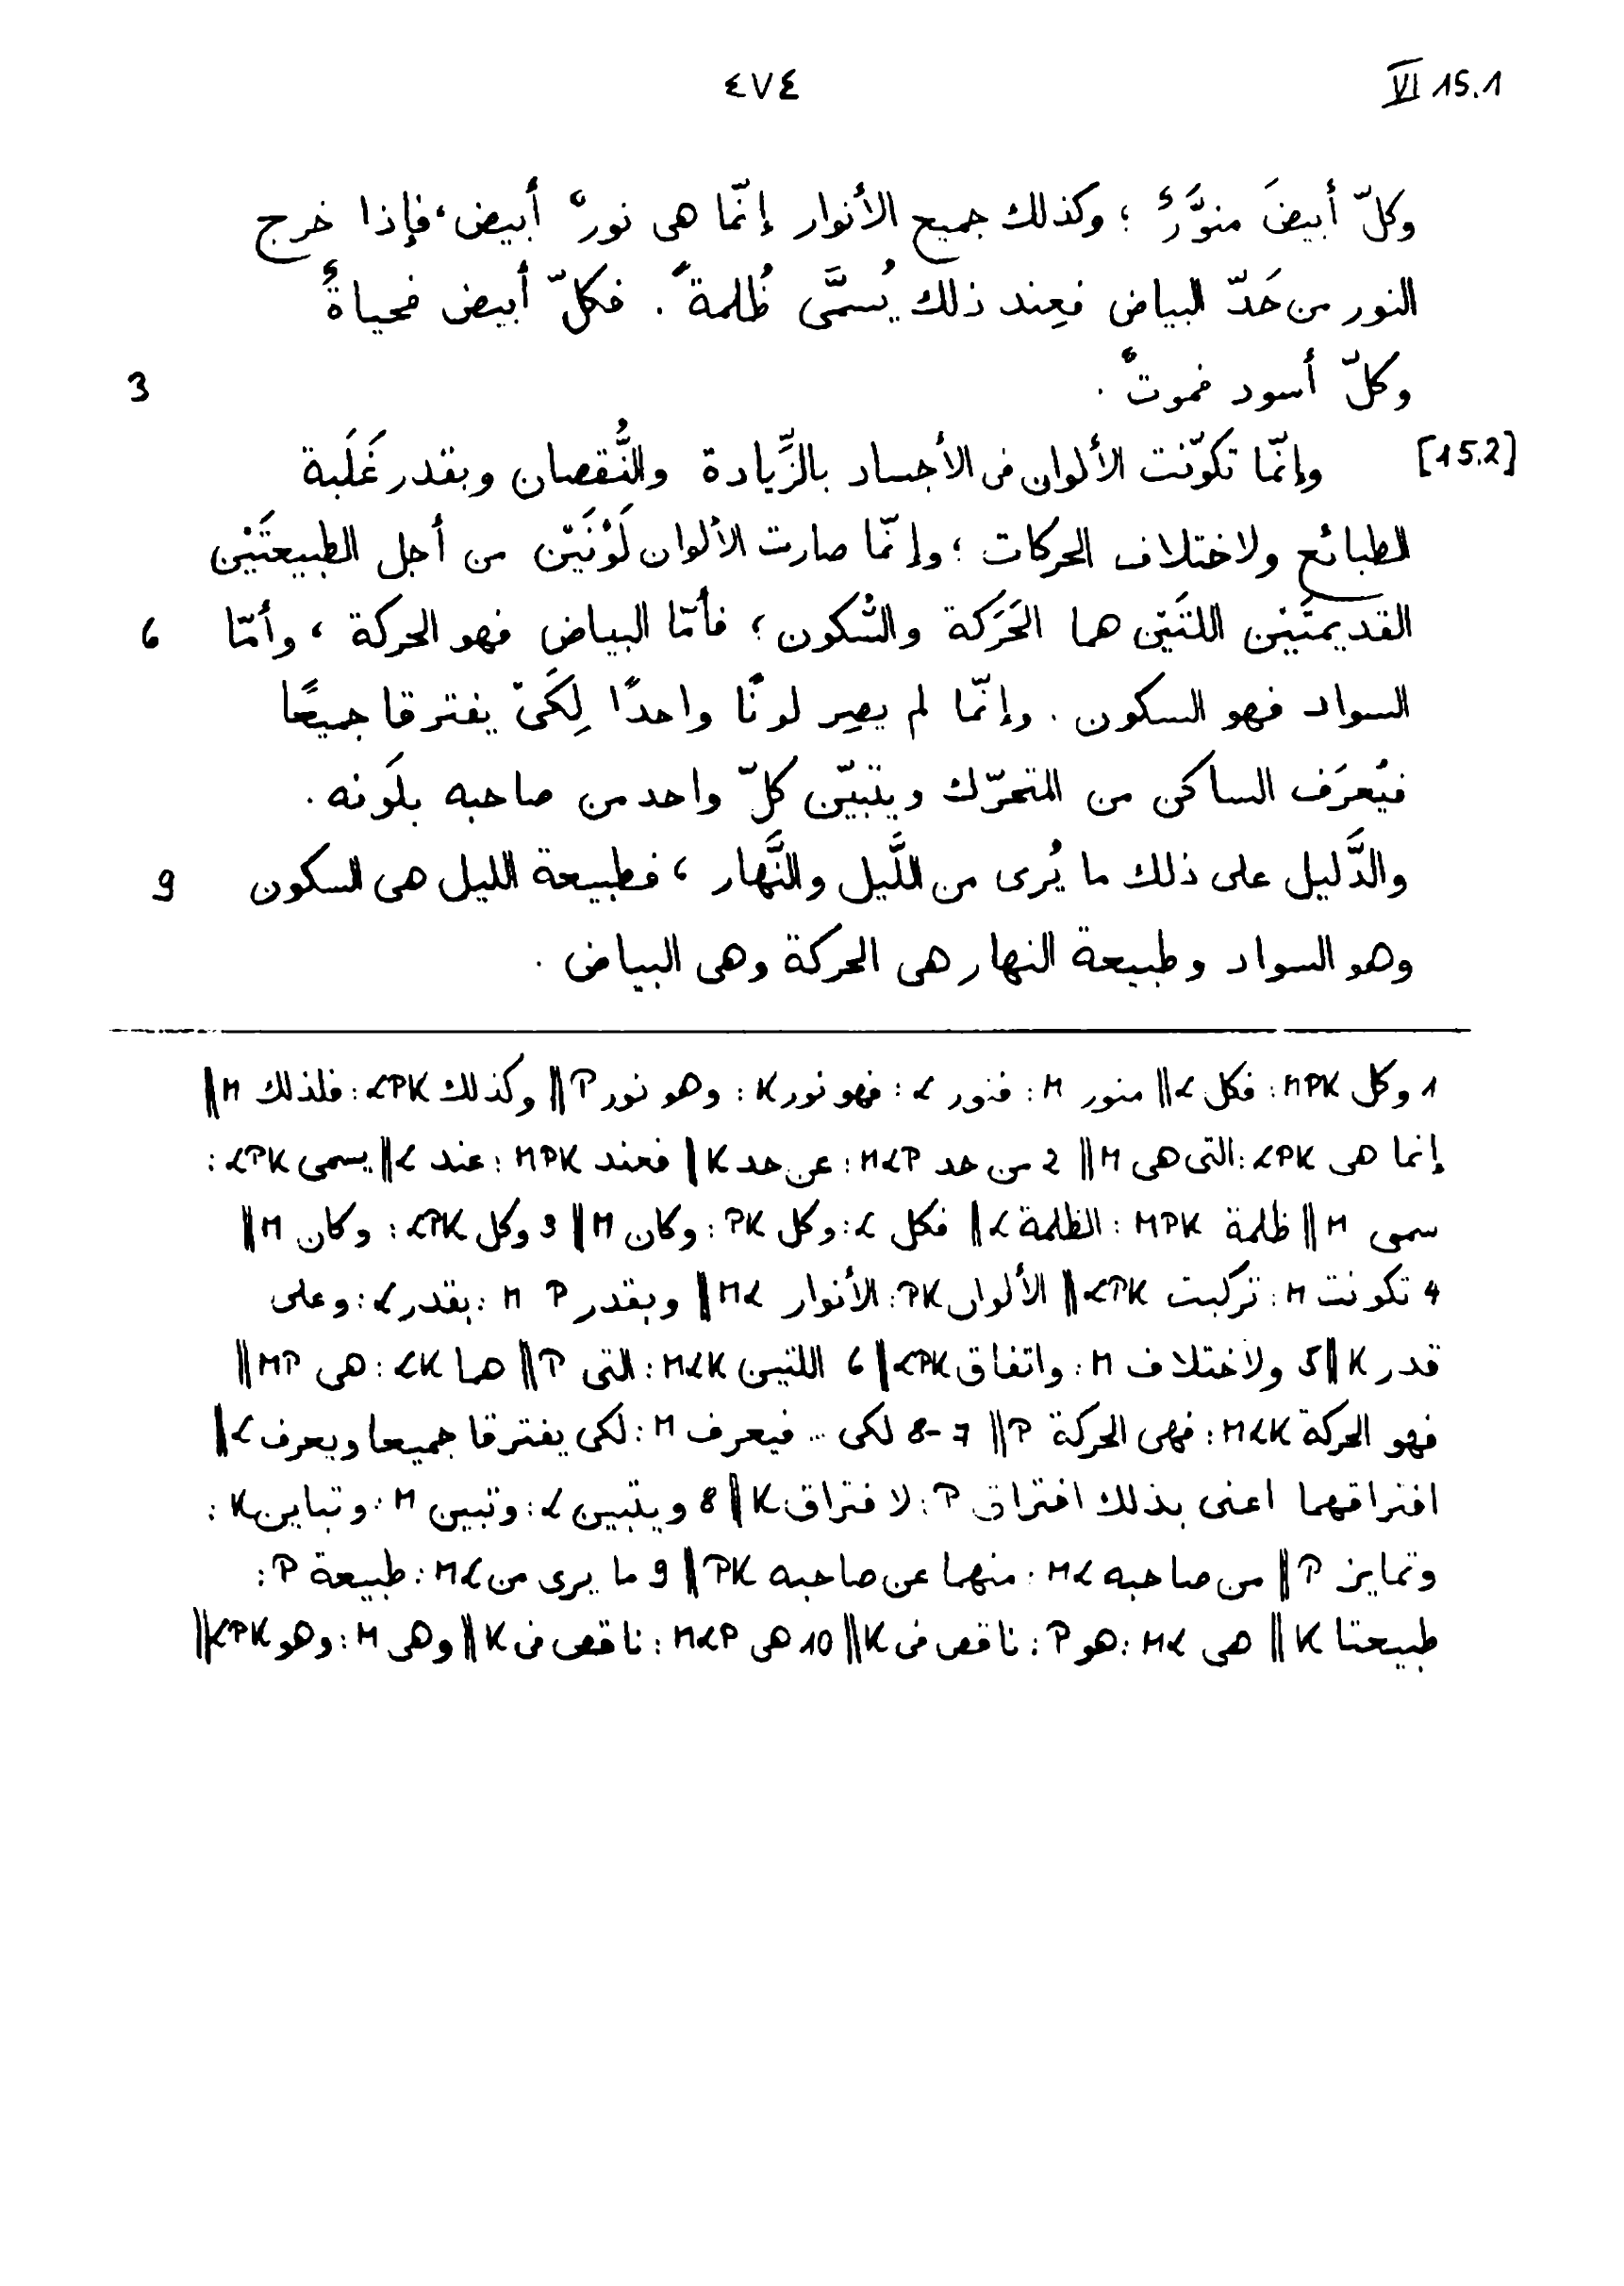 ٤٧٤ VI 15.1
وكلّ أبيضَ منوَّرٌ ؛ وكذلك جميع الأنوار إنّما هى نورٌ أبيض، فإذا خرج
النور من حَدّ البياض فعِند ذلك يُسمَّى ظُلمةً . فكلّ أبيض فحياةٌ
وكلّ أسود فموتٌ . 3
[15.2] وإنّما تكوّنت الألوان فى الأجساد بالزِّيادة والنُّقصان وبقدر غَلَبة
الطبائع ولاختلاف الحركات ؛ وإنّما صارت الألوان لَوْنَيْن من أجل الطبيعتَيْن
القديمتَيْن اللتَيْن هما الحَرَكة والسُّكون ؛ فأمّا البياض فهو الحركة ، وأمّا 6
السواد فهو السكون . وإنّما لم يصِر لونًا واحدًا لِكَىْ يفترقا جميعًا
فيُعرَف الساكن من المتحرّك ويتبيّن كلّ واحد من صاحبه بلَونه .
والدَّليل على ذلك ما يُرى من اللَّيل والنَّهار ، فطبيعة الليل هى السكون 9
وهو السواد وطبيعة النهار هى الحركة وهى البياض .
1 وكل MPK : فكل L || منور M : فنور L : فهو نور K : وهو نور P || وكذلك LPK : فلذلك M ||
إنما هى LPK : التى هى M || 2 من حد MLP : عن حد K || فعند MPK : عند L || يسمى LPK :
سمى M || ظلمة MPK : الظلمة L || فكل L : وكل PK : وكان M || 3 وكل LPK : وكان M ||
4 تكونت M : تركبت LPK || الألوان PK : الأنوار ML || وبقدر M P : بقدر L : وعلى
قدر K || 5 ولاختلاف M : واتفاق LPK || 6 اللتين MLK : التى P || هما LK : هى MP ||
فهو الحركة MLK : فهى الحركة P || 7-8 لكى .. فيعرف M : لكى يفترقا جميعا ويعرف L ||
افتراقهما اعنى بذلك افتراق P : لافتراق K || 8 ويتبين L : وتبين M : وتباين K :
وتمايز P || من صاحبه ML : منهما عن صاحبه PK || 9 ما يرى من ML : طبيعة P :
طبيعتا K || هى ML : هو P : ناقص فى K || 10 هى MLP : ناقص فى K || وهى M : وهو LPK ||